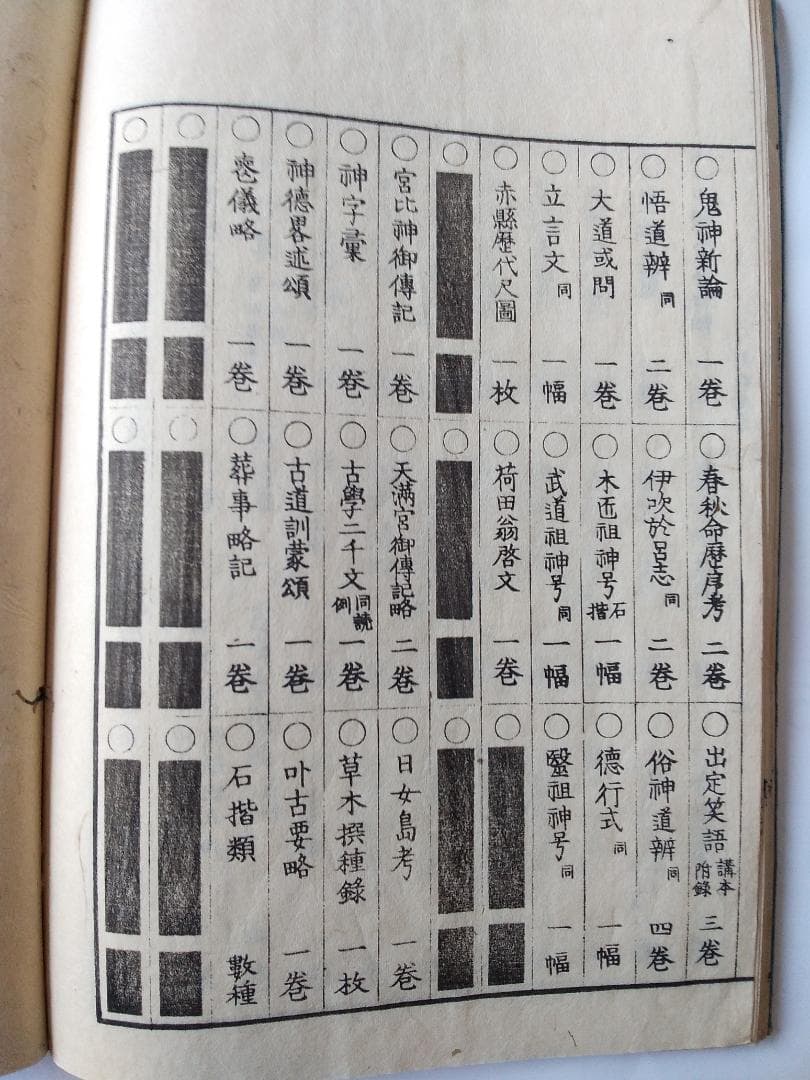 ○鬼神新論 一巻 ○春秋命歴序考 二巻 ○出定笑語 講本附録 三巻
○悟道辨 同 二巻 ○伊吹於呂志 同 二巻 ○俗神道辨 同 四巻
○大道或問 一巻 ○木匠祖神号 石摺 一幅 ○德行式 同 一幅
○立言文 同 一幅 ○武道祖神号 同 一幅 ○醫祖神号 同 一幅
○赤縣歴代尺圖 一枚 ○荷田翁啓文 一巻 ○
○ ○ ○
○宮比神御傳記 一巻 ○天満宮御傳記略 二巻 ○日女島考 一巻
○神字彙 一巻 ○古學二千文 同読例 一巻 ○草木撰種錄 一枚
○神德畧述頌 一巻 ○古道訓蒙頌 一巻 ○卟古要略 一巻
○喪儀略 一巻 ○葬事略記 一巻 ○石摺類 數種
○ ○ ○
○ ○ ○